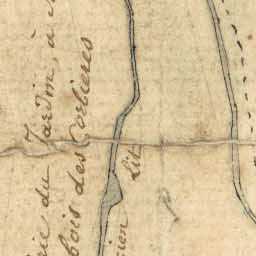 rie du Jardin, à
bois des Corbieres
cien Lit